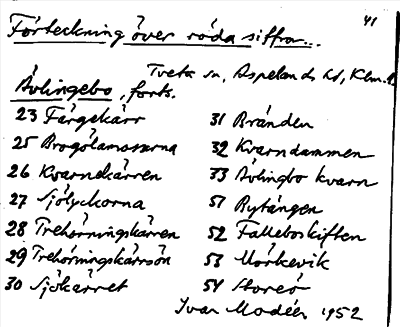 41
Förteckning över röda siffror...
Tveta sn, Aspelands hd, Klm. l.
Åvlingebo, forts.
23 Färgekärr
25 Brogölamossarna
26 Kvarnekärren
27 Sjölyckorna
28 Trehörningskärren
29 Trehörningskärrsön
30 Sjökärret
31 Bränden
32 Kvarndammen
33 Åvlingbo kvarn
51 Rytången
52 Falleboskiften
53 Mörkevik
54 Storeö
Ivar Modéer 1952